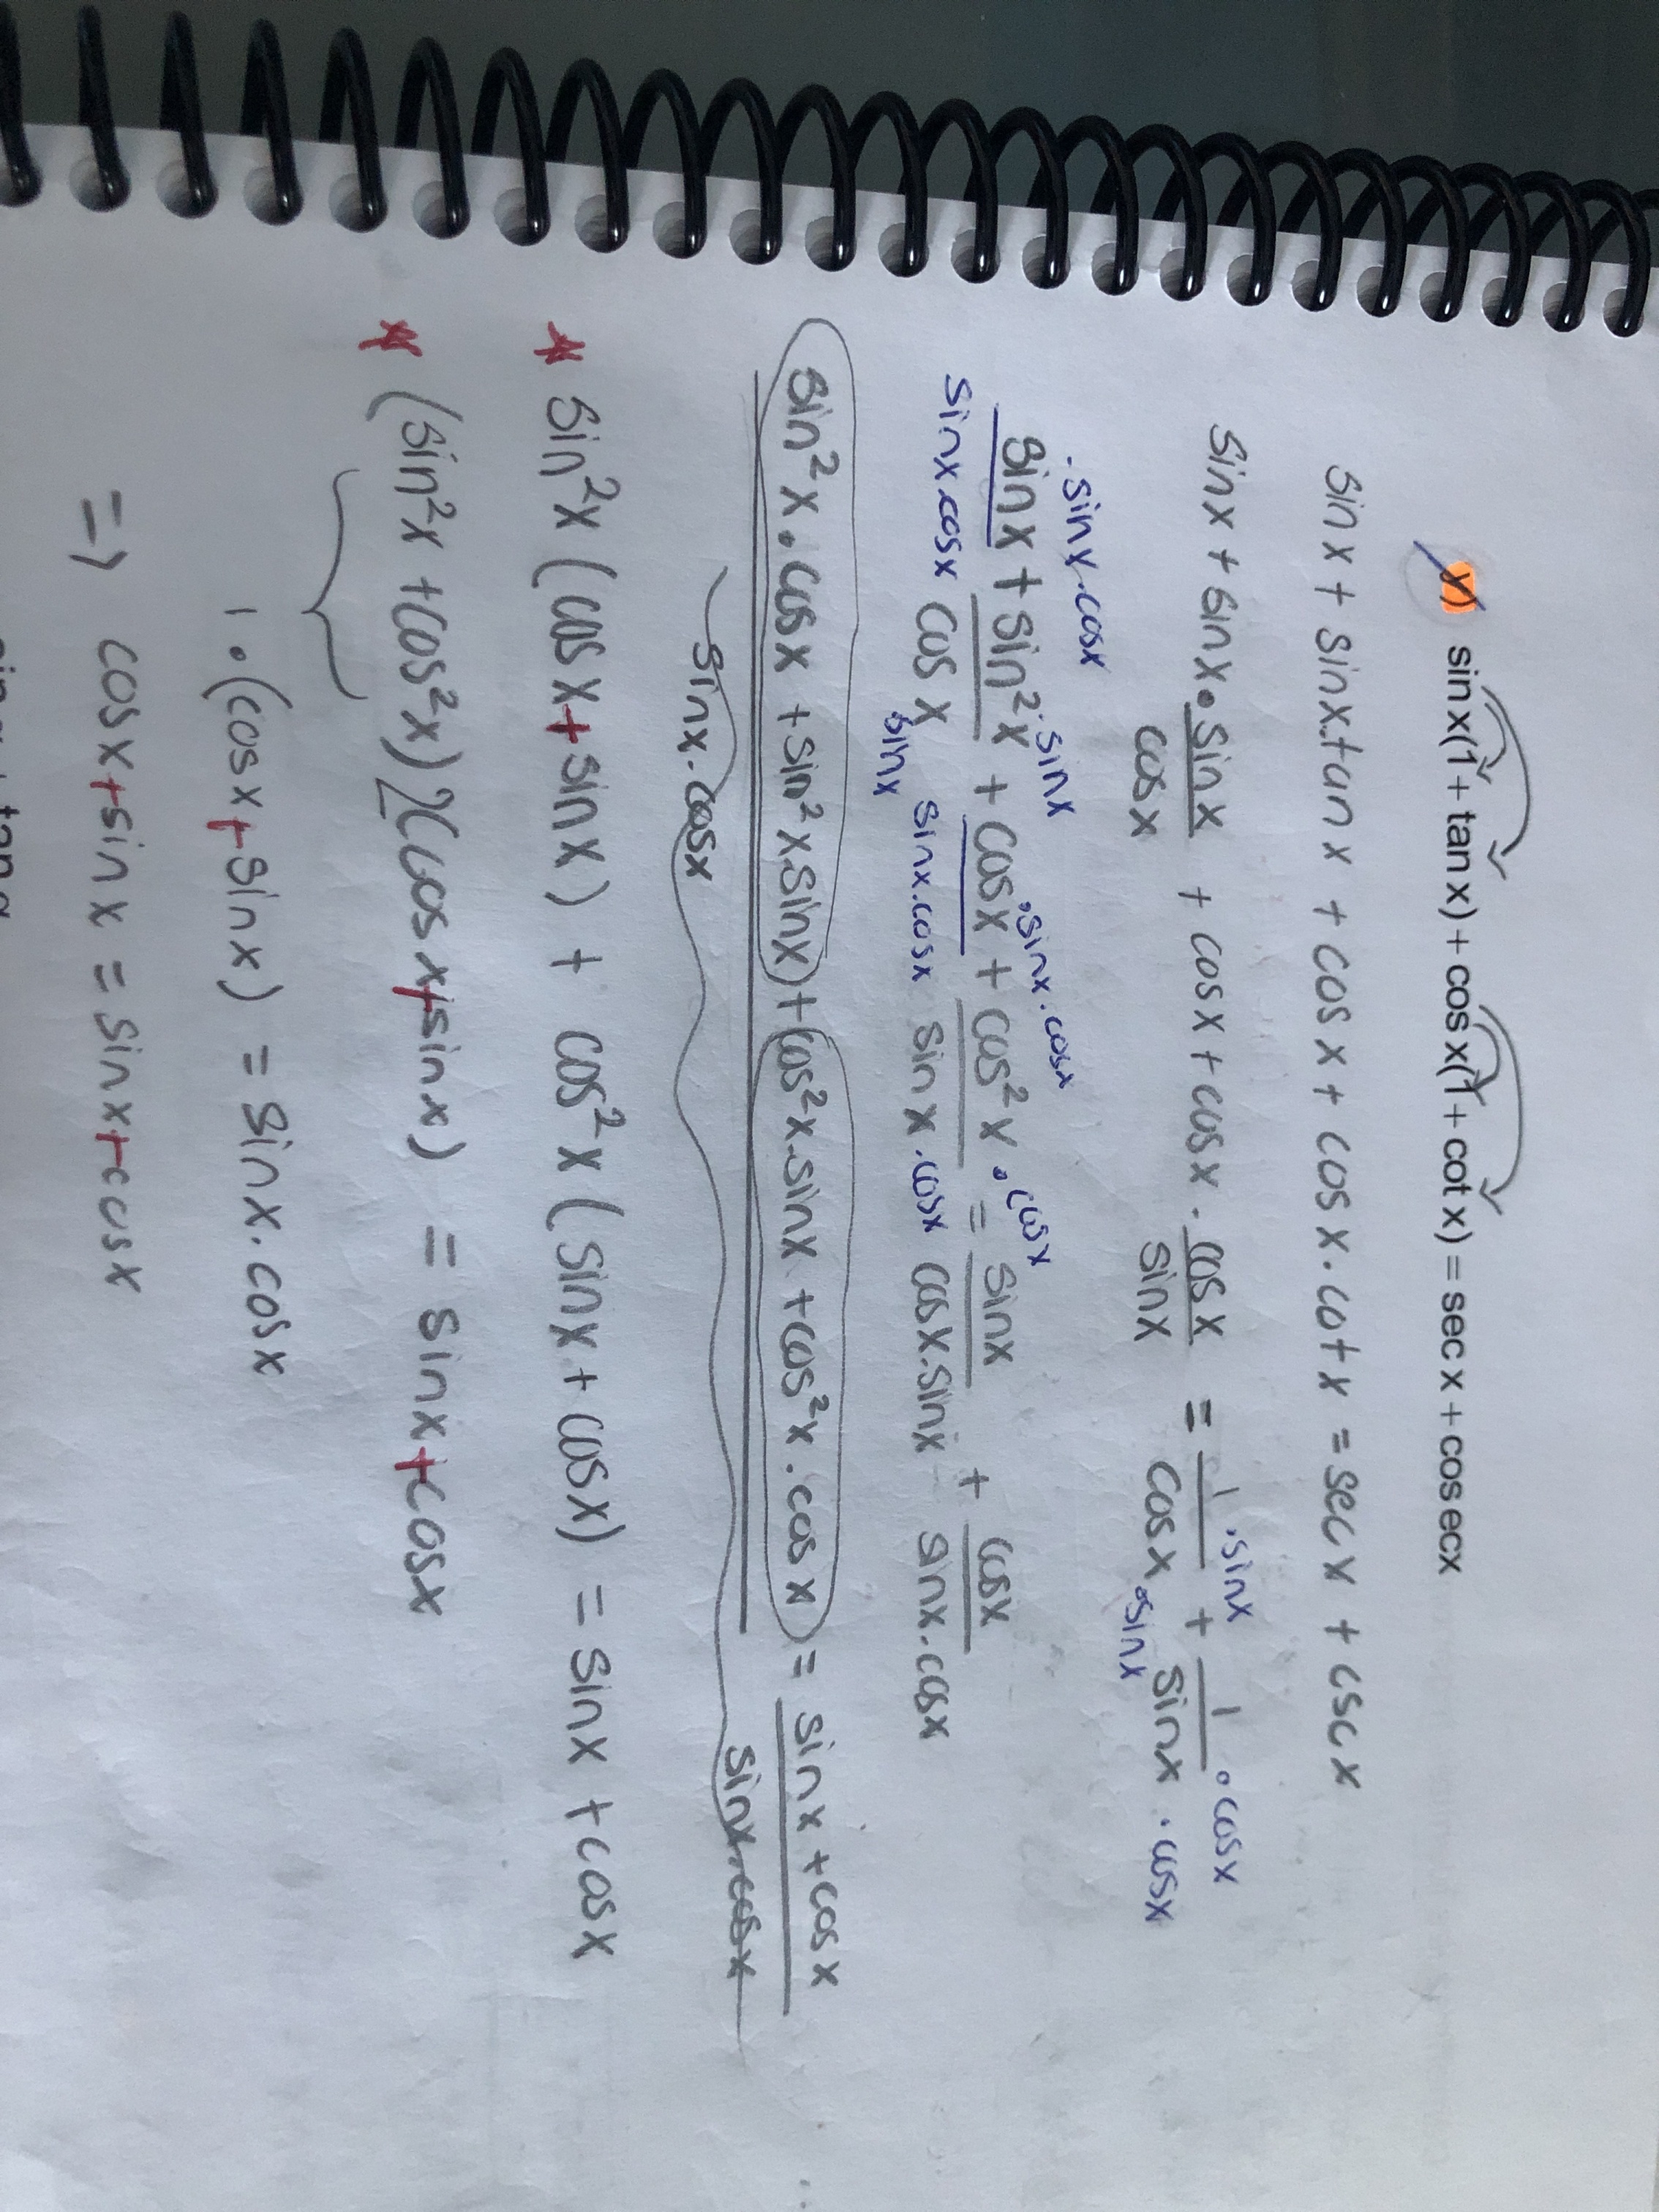 y) sin x(1 + tan x) + cos x(1 + cot x) = sec x + cosecx
sinx + sinx.tanx + cosx + cosx.cotx = secx + cscx
sinx + sinx . sinx/cosx + cosx + cosx . cosx/sinx = 1 .sinx/cosx .sinx + 1 .cosx/sinx .cosx
sinx .sinx.cosx/sinx.cosx + sin²x .sinx/cosx sinx + cosx .sinx.cosx/sinx.cosx + cos²x .cosx/sinx .cosx = sinx/cosx.sinx + cosx/sinx.cosx
sin²x.cosx + sin²x.sinx) + (cos²x.sinx + cos²x.cosx) = sinx + cosx
sinx.cosx sinx.cosx
* sin²x (cosx + sinx) + cos²x (sinx + cosx) = sinx + cosx
* (sin²x + cos²x) (cosx + sinx) = sinx + cosx
1 . (cosx + sinx) = sinx.cosx
=> cosx + sinx = sinx + cosx